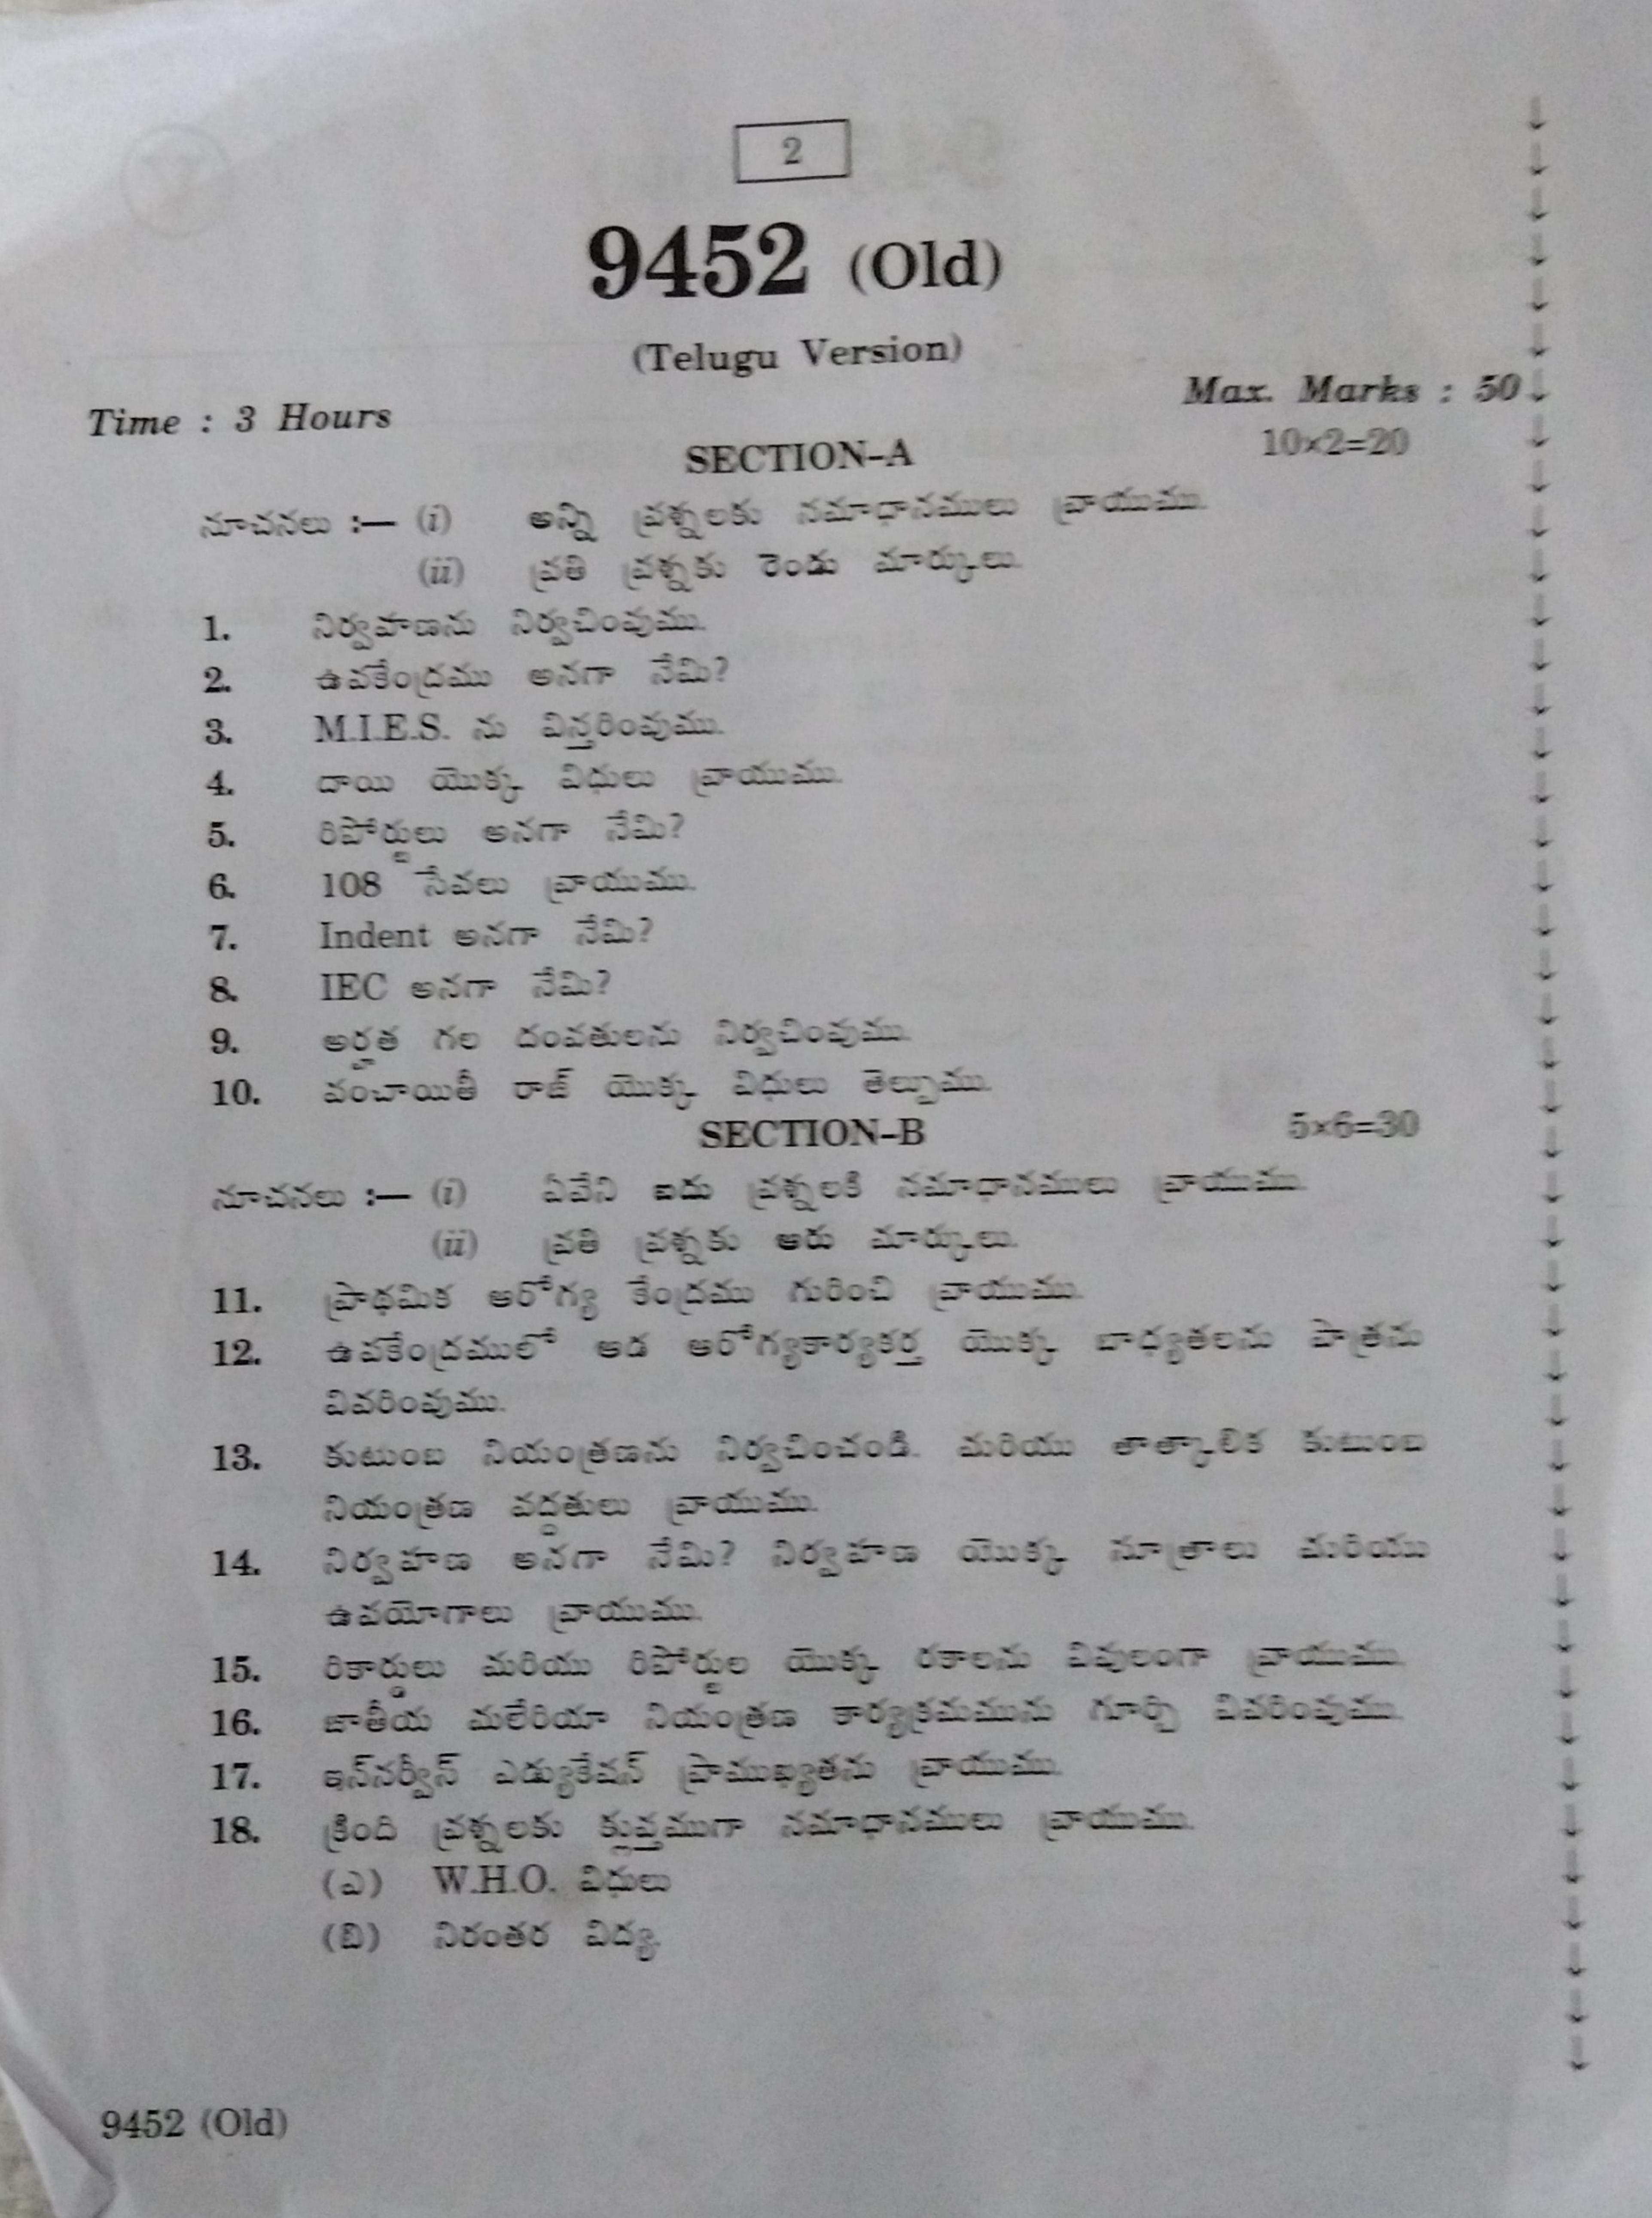 2
9452 (Old)
(Telugu Version)
Time : 3 Hours
Max. Marks : 50
SECTION-A
10×2=20
సూచనలు :— (i) అన్ని ప్రశ్నలకు సమాధానములు వ్రాయుము.
(ii) ప్రతి ప్రశ్నకు రెండు మార్కులు.
1. నిర్వహణను నిర్వచింపుము.
2. ఉపకేంద్రము అనగా నేమి?
3. M.I.E.S. ను విస్తరింపుము.
4. దాయి యొక్క విధులు వ్రాయుము.
5. రిపోర్టులు అనగా నేమి?
6. 108 సేవలు వ్రాయుము.
7. Indent అనగా నేమి?
8. IEC అనగా నేమి?
9. అర్హత గల దంపతులను నిర్వచింపుము.
10. పంచాయితీ రాజ్ యొక్క విధులు తెల్పుము.
SECTION-B
5×6=30
సూచనలు :— (i) ఏవేని ఐదు ప్రశ్నలకి సమాధానములు వ్రాయుము.
(ii) ప్రతి ప్రశ్నకు ఆరు మార్కులు.
11. ప్రాథమిక ఆరోగ్య కేంద్రము గురించి వ్రాయుము.
12. ఉపకేంద్రములో ఆడ ఆరోగ్యకార్యకర్త యొక్క బాధ్యతలను పాత్రను
వివరింపుము.
13. కుటుంబ నియంత్రణను నిర్వచించండి. మరియు తాత్కాలిక కుటుంబ
నియంత్రణ పద్ధతులు వ్రాయుము.
14. నిర్వహణ అనగా నేమి? నిర్వహణ యొక్క సూత్రాలు మరియు
ఉపయోగాలు వ్రాయుము.
15. రికార్డులు మరియు రిపోర్టుల యొక్క రకాలను విపులంగా వ్రాయుము.
16. జాతీయ మలేరియా నియంత్రణ కార్యక్రమమును గూర్చి వివరింపుము.
17. ఇన్‌సర్వీస్ ఎడ్యుకేషన్ ప్రాముఖ్యతను వ్రాయుము.
18. క్రింది ప్రశ్నలకు క్లుప్తముగా సమాధానములు వ్రాయుము.
(ఎ) W.H.O. విధులు
(బి) నిరంతర విద్య.
9452 (Old)